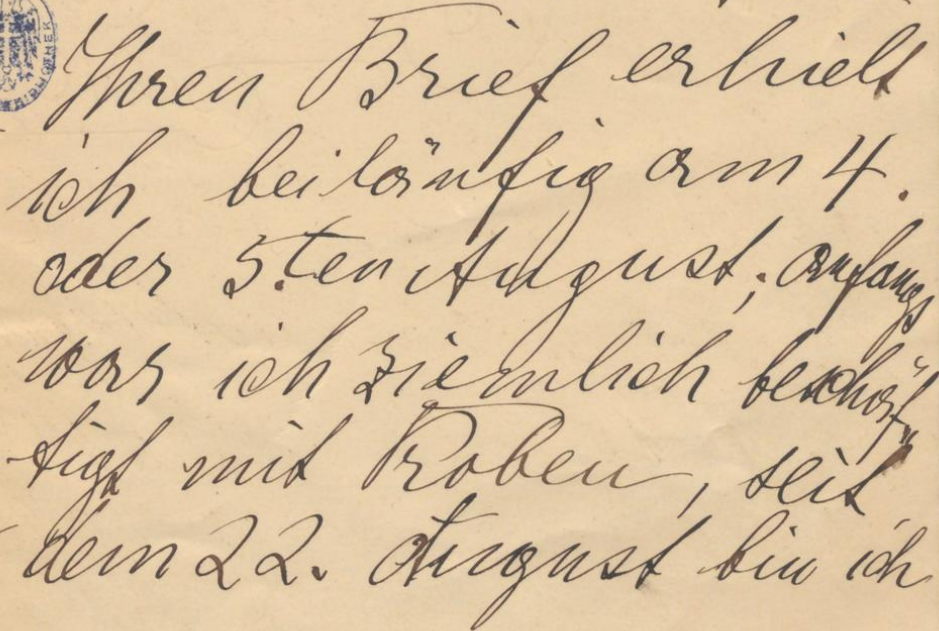 Ihren Brief erhielt
ich beiläufig am 4.
oder 5.ten August; anfangs
war ich ziemlich beschäf„
tigt mit Proben, seit
dem 22. August bin ich